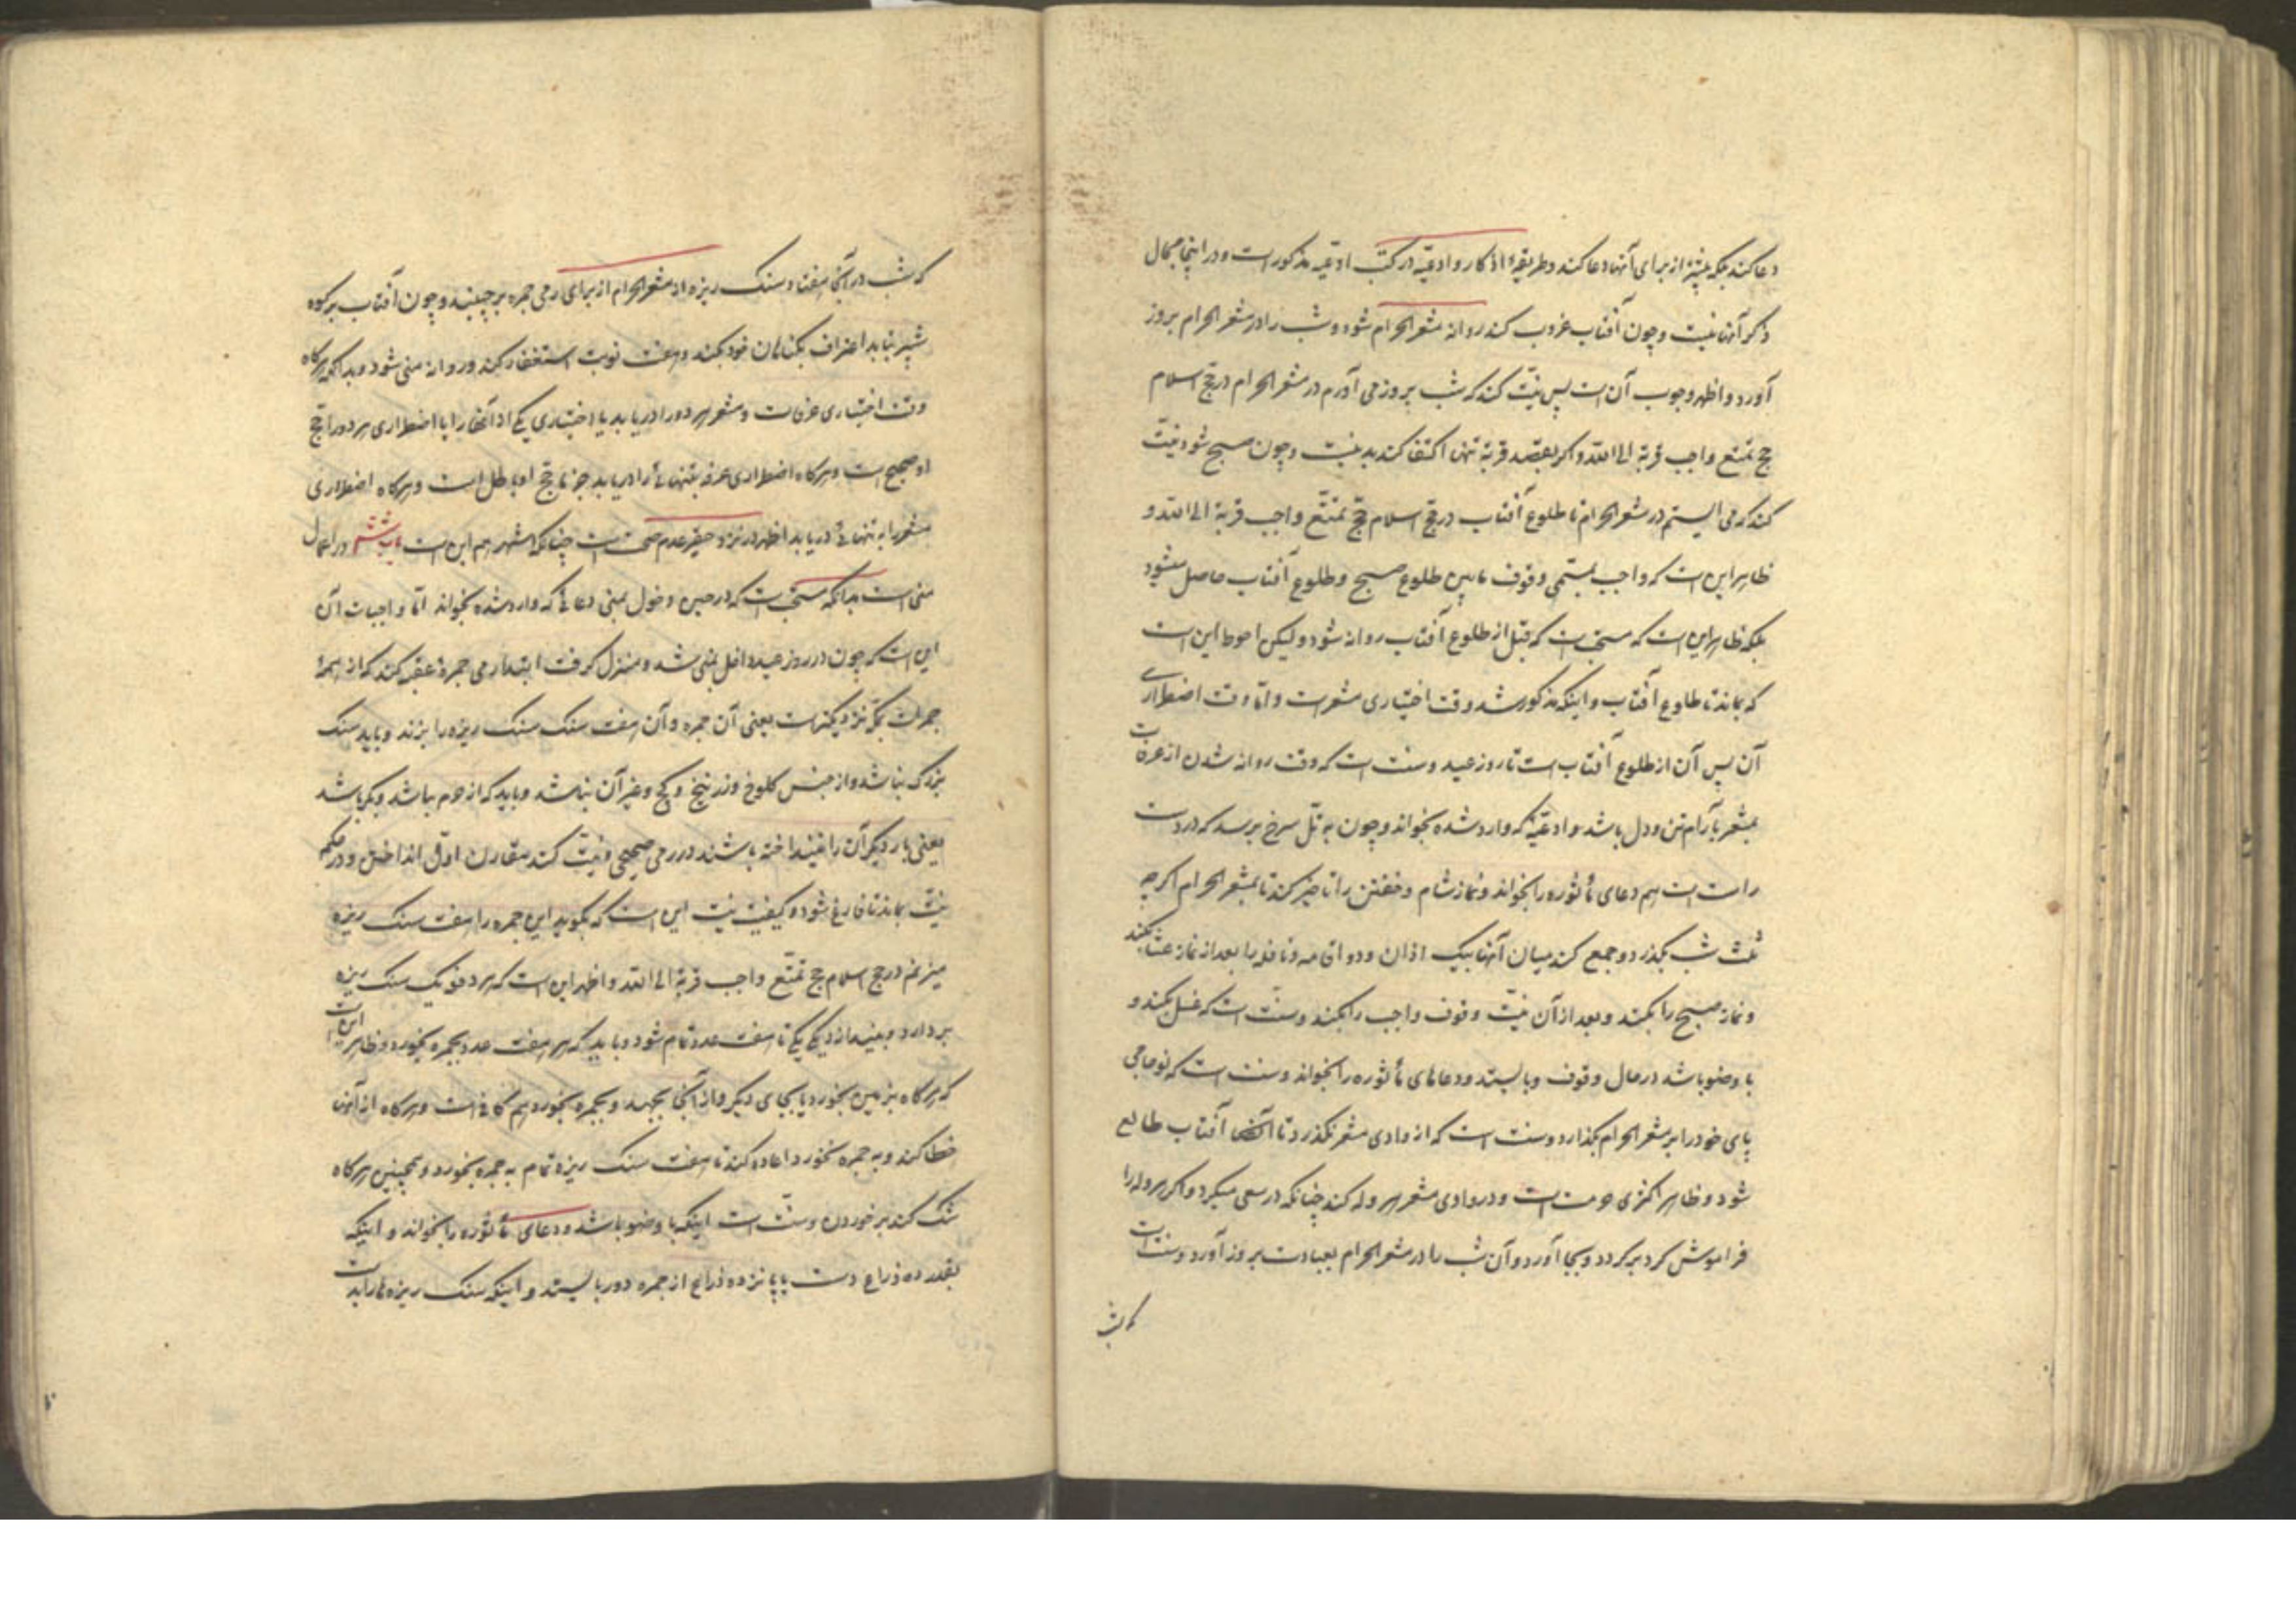 دعا کند بلکه بیشتر از برای آنها دعا کند و طریقهٔ اذکار و ادعیه در کتب ادعیه مذکور است و در اینجا مجال
ذکر آنها نیست و چون آفتاب غروب کند روانه مشعر الحرام شود و شب را در مشعر الحرام بروز
آورد و اظهر وجوب آن است پس نیّت کند که شب بروز می آورم در مشعر الحرام در حج اسلام
حج تمتع واجب قربة الی الله و اگر بقصد قربة تنها اکتفا کند بد نیست و چون صبح شود نیّت
کند که می ایستم در مشعر الحرام تا طلوع آفتاب در حج اسلام حج تمتّع واجب قربة الی الله و
ظاهر این است که واجب بمسمی وقوف مابین طلوع صبح و طلوع آفتاب حاصل میشود
بلکه ظاهر این است که مستحب است که قبل از طلوع آفتاب روانه شود و لیکن احوط این است
که بماند تا طلوع آفتاب و اینکه مذکور شد وقت اختیاری مشعر است و امّا وقت اضطراری
آن پس آن از طلوع آفتاب است تا روز عید و سنت است که وقت روانه شدن از عرفات
بمشعر بآرام تن و دل باشد و ادعیهٔ که وارد شده بخواند و چون به تل سرخ برسد که در دست
راست است هم دعای مأثوره را بخواند و نماز شام و خفتن را تاخیر کند تا بمشعر الحرام اگرچه
ثلث شب بگذرد و جمع کند میان آنها بیک اذان و دو اقامه و نافله را بعد از نماز عشا بکند
و نماز صبح را بکند و بعد از آن نیّت وقوف واجب را بکند و سنّت است که غسل بکند و
با وضو باشد در حال وقوف و بایستد و دعاهای مأثوره را بخواند و سنت است که نو حاجی
پای خود را بر مشعر الحرام بگذارد و سنت است که از وادی مشعر نگذرد تا آنکه آفتاب طالع
شود و ظاهر اکثری حرمت است و در وادی مشعر هروله کند چنانکه در سعی میکرد و اگر هروله را
فراموش کرد برگردد و بجا آورد و آن شب را در مشعر الحرام بعبادت بروز آورد و سنت است
که شب
که شب در آنجا هفتاد سنک ریزه از مشعر الحرام از برای رمی جمره برچیند و چون آفتاب بر کوه
ثبیر بتابد اعتراف بگناهان خود بکند و هفت نوبت استغفار کند و روانه منی شود و بدانکه هرگاه
وقت اختیاری عرفات و مشعر هر دو را دریابد یا اختیاری یکی از آنها را با اضطراری هر دو را حج
او صحیح است و هرگاه اضطراری عرفه بتنهائی را دریابد جزما حج او باطل است و هرگاه اضطراری
مشعر را به تنهائی دریابد اظهر در نزد حقیر عدم صحت است چنانکه اشهر هم این است باب ششم در اعمال
منی است بدانکه مستحب است که در حین دخول بمنی دعائی که وارد شده بخواند امّا واجبات آن
این است که چون در روز عید داخل بمنی شد و منزل گرفت ابتدا رمی جمرهٔ عقبه کند که از همهٔ
جمرات بمکّه نزدیکتر است یعنی آن جمره و آن هفت سنک سنک ریزه را بزند و باید سنک
بزرگ نباشد و از جنس کلوخ و زرنیخ و گچ و غیر آن نباشد و باید که از حرم باشد و بکر باشد
یعنی بار دیگر آن را نینداخته باشند در رمی صحیحی و نیّت کند مقارن اوّل انداختن و در حکم
نیّت بماند تا فارغ شود و کیفیّت نیّت این است که بگوید این جمره را هفت سنک ریزه
میزنم در حج اسلام حج تمتّع واجب قربة الی الله و اظهر این است که هر دفعه یک سنک ریزه
بردارد و بیندازد یکی یکی تا هفت عدد تمام شود و باید که هر هفت عدد بجمره بخورد و ظاهر این است
که هرگاه بزمین بخورد یا بجای دیگر و از آنجا بجهد و بجمره بخورد هم کافی است و هرگاه از آنها
خطا کند و به جمره نخورد اعاده کند تا هفت سنک ریزه تمام به جمره بخورد و همچنین هرگاه
شک کند بر خوردن و سنّت است اینکه با وضو باشد و دعای مأثوره را بخواند و اینکه
بقدر ده ذراع دست یا پانزده ذراع از جمره دور بایستد و اینکه سنک ریزه ها را بدست